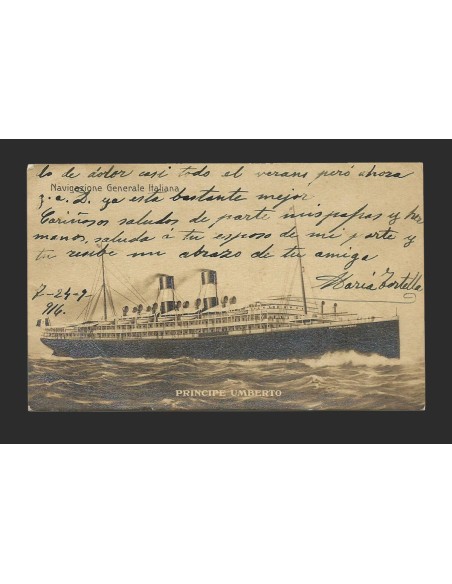 lo de dolor casi todo el verano peró ahora
Navigazione Generale Italiana
g. a. D. ya esta bastante mejor.
Cariñosos saludos de parte mis papas y her
manos, saluda á tu esposo de mi parte y
tu recibe un abrazo de tu amiga
María Tortella
7-24-9
916.
PRINCIPE UMBERTO